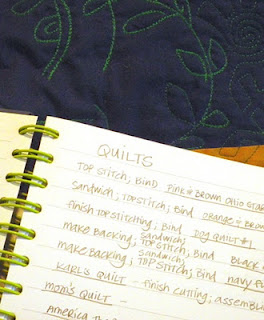 QUILTS
TOP STITCH, BIND PINK & BROWN OHIO STAR
SANDWICH, TOPSTITCH, BIND ORANGE & BROWN
FINISH TOPSTITCHING, BIND DOG QUILT #1
MAKE BACKING, SANDWICH, TOPSTITCH, BIND BLACK
MAKE BACKING, SANDWICH, TOPSTITCH, BIND NAVY
KARL'S QUILT - FINISH CUTTING, ASSEMBL
MOM'S QUILT -
AMERICA